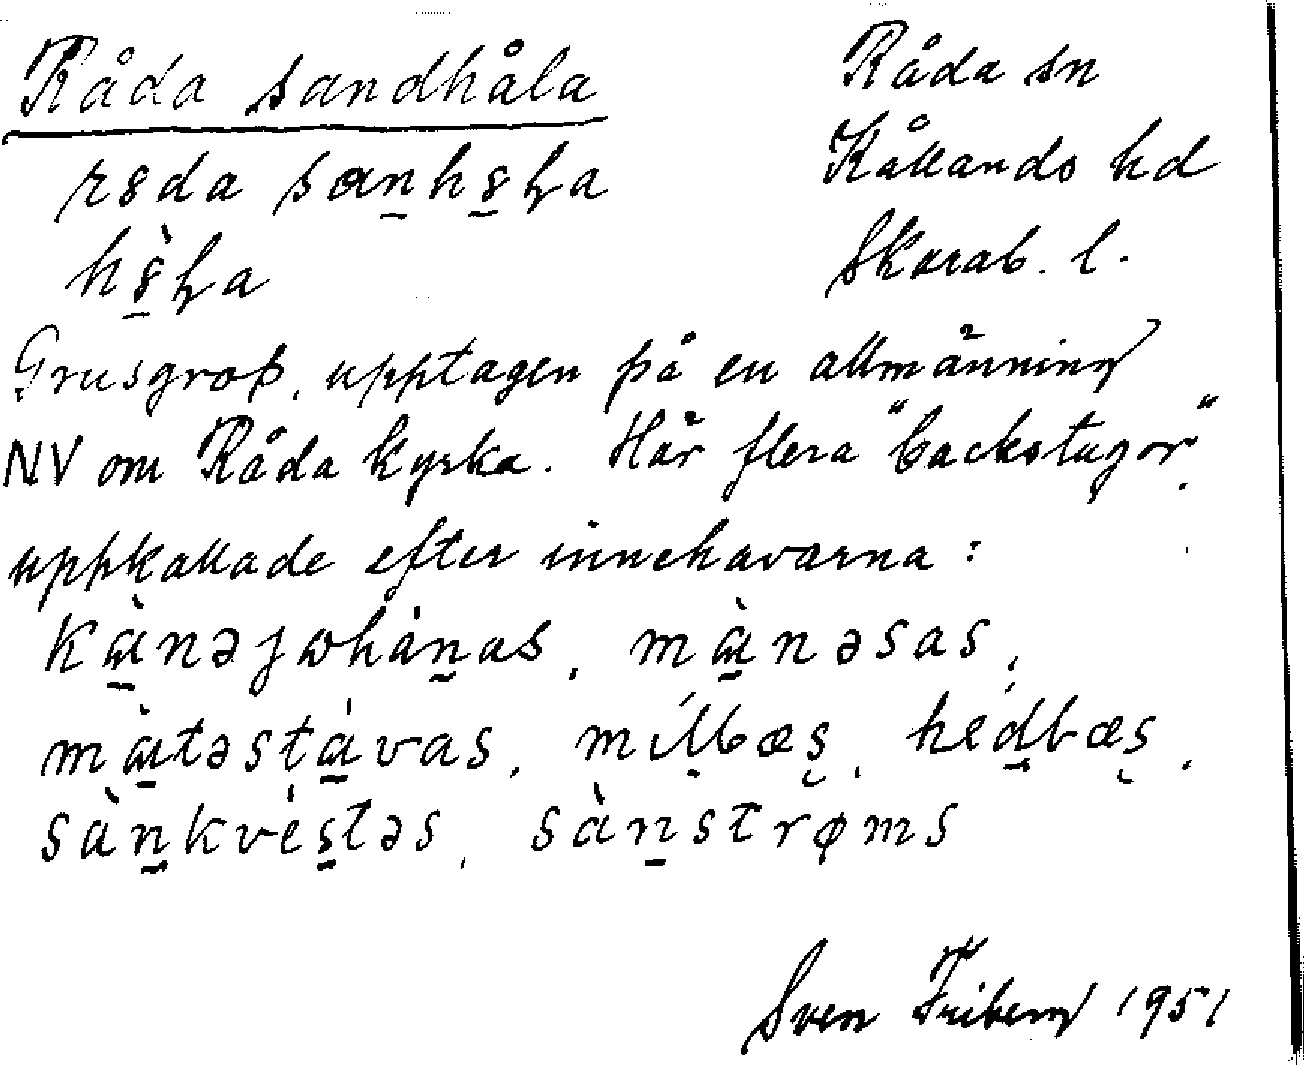 Råda sandhåla
Råda sn
Kållands hd
Skarab. l.
Grusgrop, upptagen på en allmänning
NV om Råda kyrka. Här flera "backstugor",
uppkallade efter innehavarna:
kànəjωhánas, mànəsas,
màtəstávas, mílbæs, hédbæs,
sànkvéstəs, sànstrøms
Sven Friberg 1951